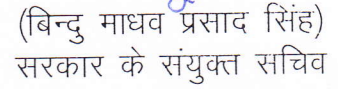 (बिन्दु माधव प्रसाद सिंह)
सरकार के संयुक्त सचिव